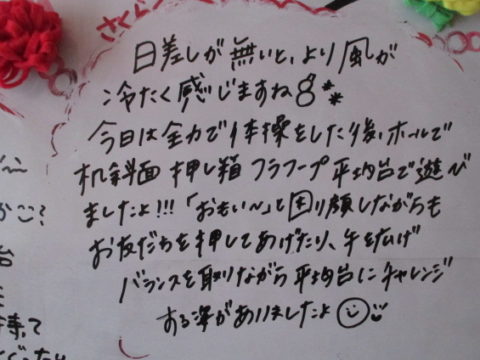 さくら
日差しが無いと、より風が
冷たく感じますね
今日は全力で体操をした後、ホールで
机斜面 押し箱 フラフープ 平均台で遊び
ましたよ!!!「おもい〜」と困り顔しながらも
お友だちを押してあげたり、手を広げ
バランスを取りながら平均台にチャレンジ
する姿がありましたよ
かご?
台